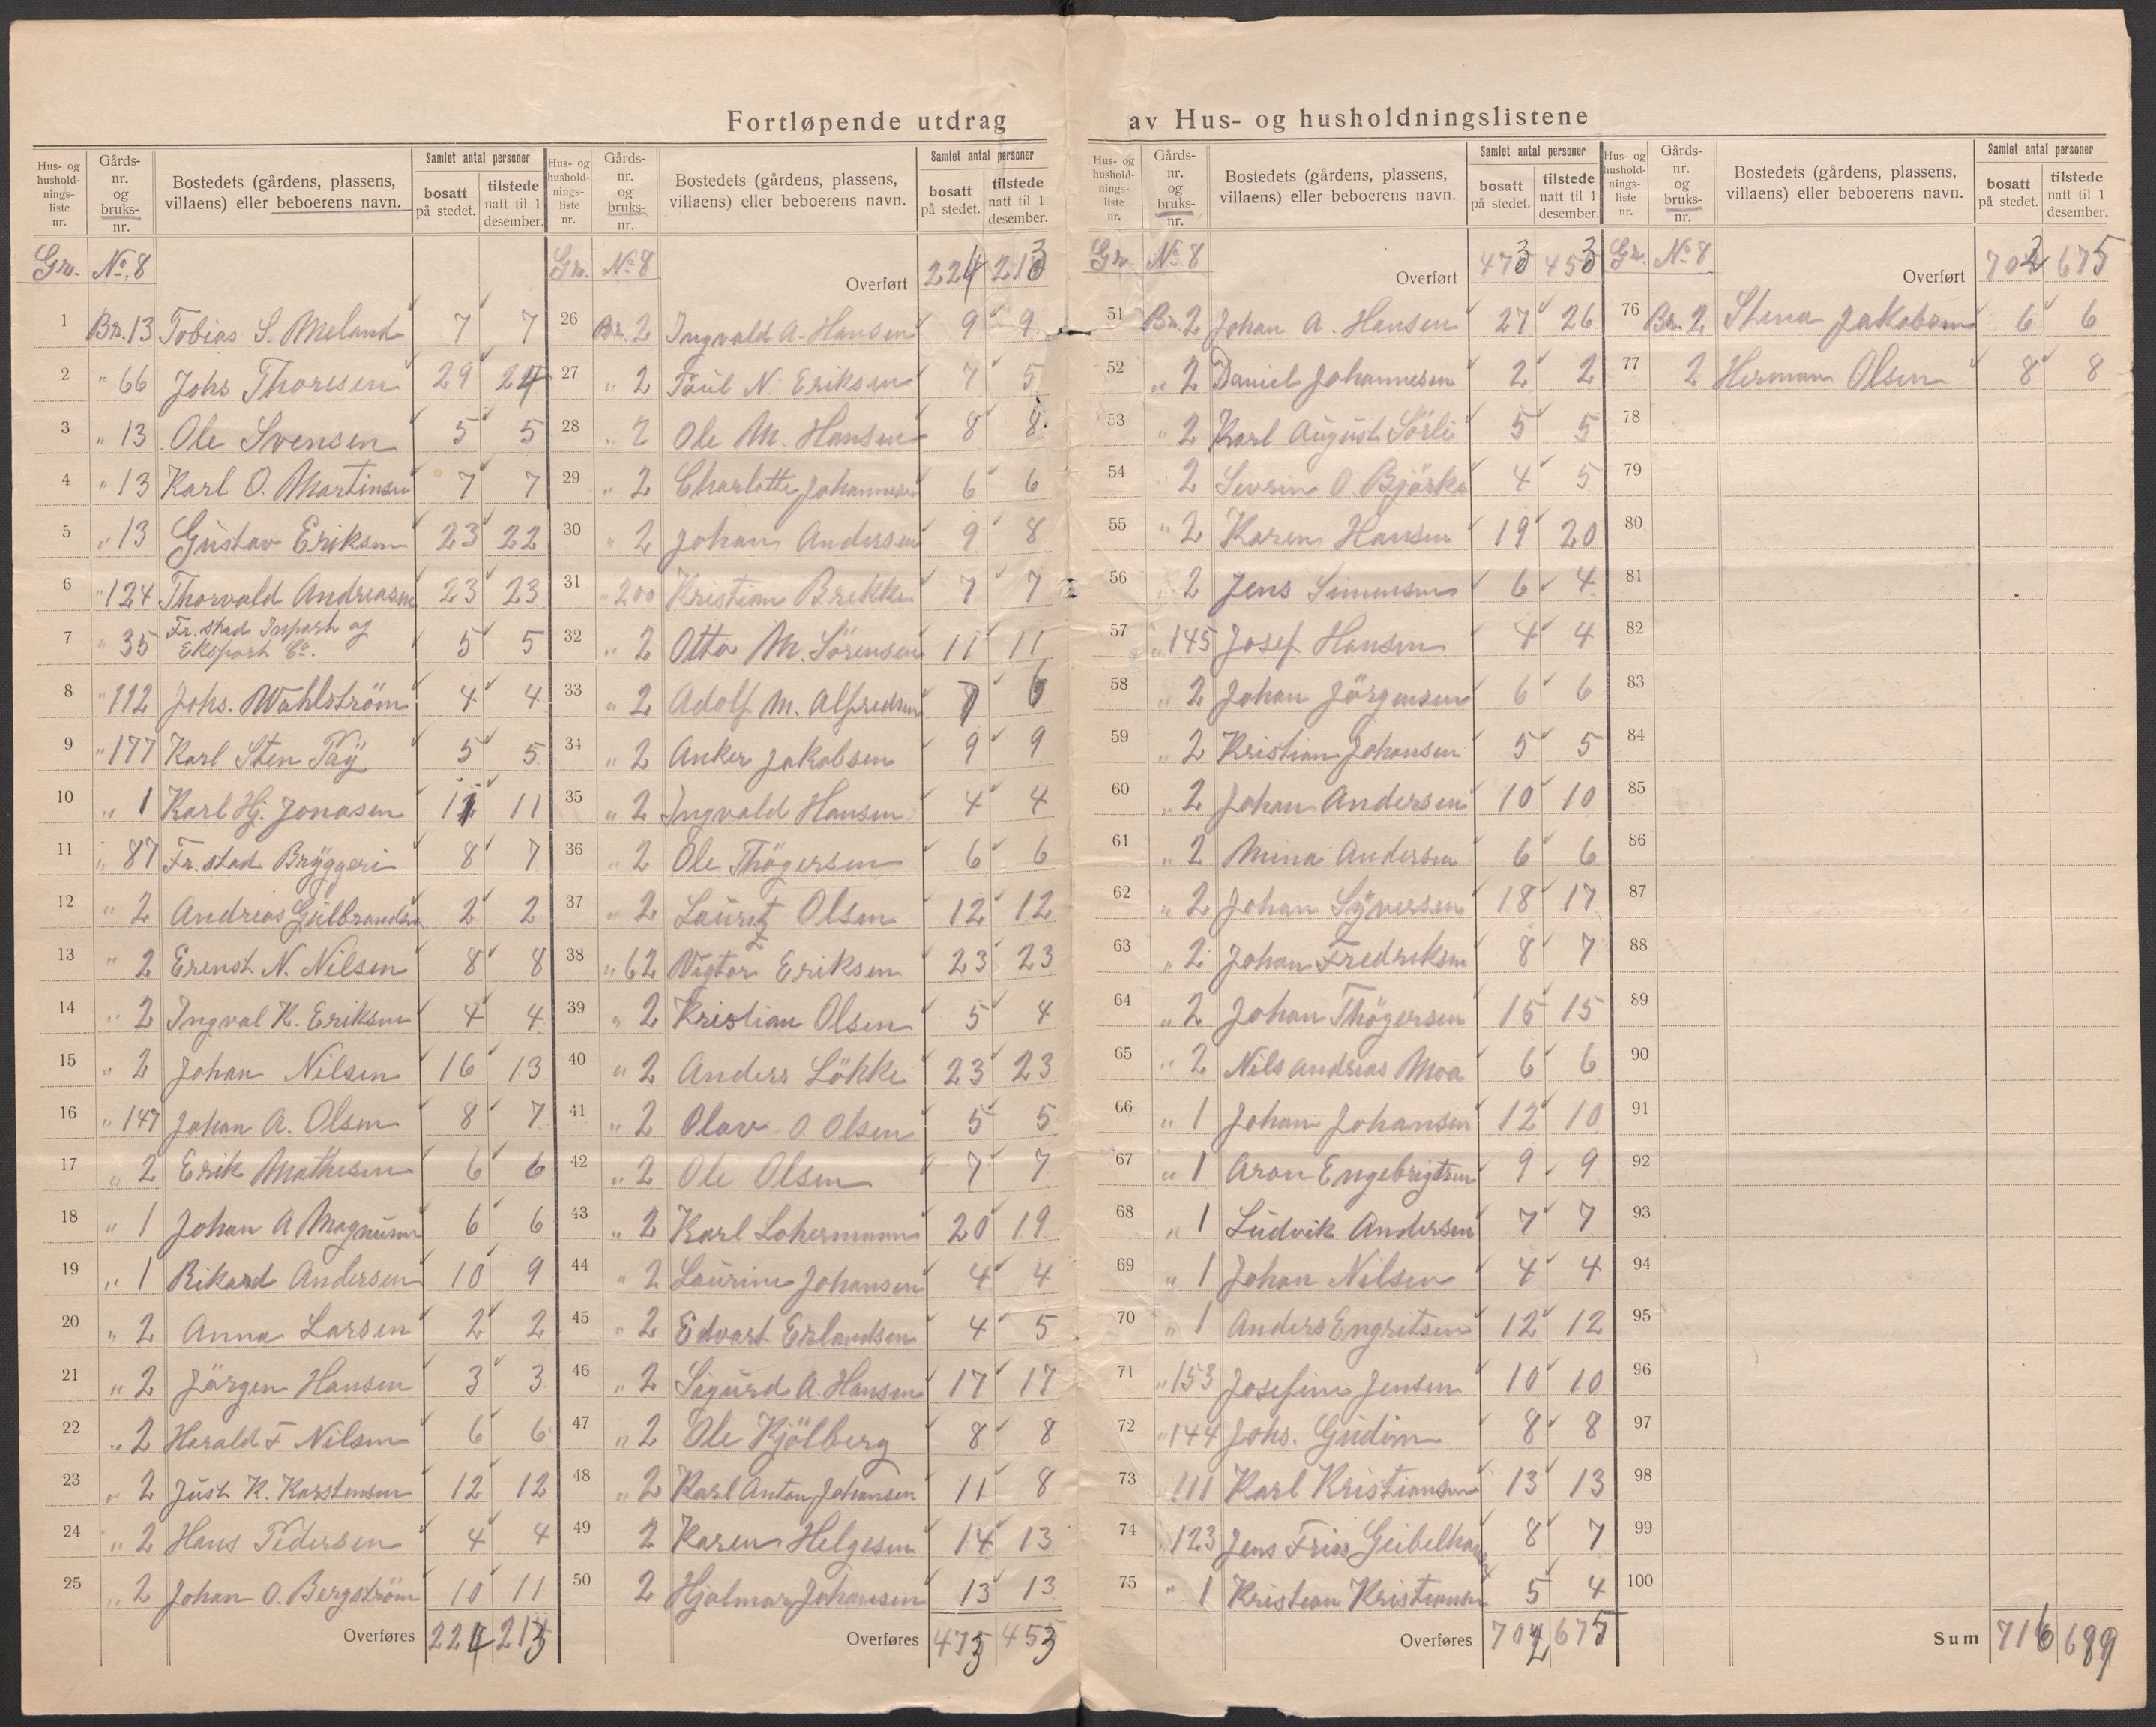 Fortløpende utdrag av Hus- og husholdningslistene
Hus- og husholdnings-liste nr. | Gårds-nr. og bruks-nr. | Bostedets (gårdens, plassens, villaens) eller beboerens navn. | Samlet antal personer | bosatt på stedet. | tilstede natt til 1 desember.
Gr. No. 8
1 Br. 13 Tobias S. Meland 7 7
2 " 66 Johs Thoresen 29 24
3 " 13 Ole Svensen 5 5
4 " 13 Karl O. Martinsen 7 7
5 " 13 Gustav Eriksen 23 22
6 " 124 Thorvald Andreasen 23 23
7 " 35 Fr.stad Import og
Eksport Co. 5 5
8 " 112 Johs. Wahlström 4 4
9 " 177 Karl Sten Tøy 5 5
10 " 1 Karl Hj. Jonasen 11 11
11 " 87 Fr.stad Bryggeri 8 7
12 " 2 Andreas Gulbrandsen 2 2
13 " 2 Erenst N. Nilsen 8 8
14 " 2 Ingval K. Eriksen 4 4
15 " 2 Johan Nilsen 16 13
16 " 147 Johan A. Olsen 8 7
17 " 2 Erik Mathesen 6 6
18 " 1 Johan A Magnusen 6 6
19 " 1 Rikard Andersen 10 9
20 " 2 Anna Larsen 2 2
21 " 2 Jörgen Hansen 3 3
22 " 2 Harald F Nilsen 6 6
23 " 2 Just K. Karstensen 12 12
24 " 2 Hans Pedersen 4 4
25 " 2 Johan O. Bergström 10 11
Overføres 224 213
Hus- og husholdnings-liste nr. | Gårds-nr. og bruks-nr. | Bostedets (gårdens, plassens, villaens) eller beboerens navn. | Samlet antal personer | bosatt på stedet. | tilstede natt til 1 desember.
Gr. No 8 Overført 224 213
26 Br. 2 Ingvald A. Hansen 9 9
27 " 2 Paul N. Eriksen 7 5
28 " 2 Ole M. Hansen 8 8
29 " 2 Charlotte Johannesen 6 6
30 " 2 Johan Andersen 9 8
31 " 200 Kristian Brekke 7 7
32 " 2 Otto M. Sörensen 11 11
33 " 2 Adolf M. Alfredsen 7 6
34 " 2 Anker Jakobsen 9 9
35 " 2 Ingvald Hansen 4 4
36 " 2 Ole Thögersen 6 6
37 " 2 Lauritz Olsen 12 12
38 " 62 Vigtor Eriksen 23 23
39 " 2 Kristian Olsen 5 4
40 " 2 Anders Lökke 23 23
41 " 2 Olav O. Olsen 5 5
42 " 2 Ole Olsen 7 7
43 " 2 Karl Lohermann 20 19
44 " 2 Laurine Johansen 4 4
45 " 2 Edvart Erlandsen 4 5
46 " 2 Sigurd A. Hansen 17 17
47 " 2 Ole Kjölberg 8 8
48 " 2 Karl Anton Johansen 11 8
49 2 Karen Helgesen 14 13
50 2 Hjalmar Johansen 13 13
Overføres 473 453
Hus- og husholdnings-liste nr. | Gårds-nr. og bruks-nr. | Bostedets (gårdens, plassens, villaens) eller beboerens navn. | Samlet antal personer | bosatt på stedet. | tilstede natt til 1 desember.
Gr. No 8 Overført 473 453
51 Br. 2 Johan A. Hansen 27 26
52 " 2 Daniel Johannesen 2 2
53 " 2 Karl August Sörli 5 5
54 2 Sevrin O. Björke 4 5
55 " 2 Karen Hansen 19 20
56 " 2 Jens Simensen 6 4
57 " 145 Josef Hansen 4 4
58 " 2 Johan Jörgensen 6 6
59 " 2 Kristian Johansen 5 5
60 " 2 Johan Andersen 10 10
61 " 2 Mina Andersen 6 6
62 " 2 Johan Syversen 18 17
63 " 2 Johan Fredriksen 8 7
64 " 2 Johan Thögersen 15 15
65 " 2 Nils Andreas Moa 6 6
66 " 1 Johan Johansen 12 10
67 " 1 Aron Engebrigtsen 9 9
68 " 1 Ludvik Andersen 7 7
69 " 1 Johan Nilsen 4 4
70 " 1 Anders Engretsen 12 12
71 " 153 Josefine Jensen 10 10
72 " 144 Johs. Gudim 8 8
73 111 Karl Kristiansen 13 13
74 123 Jens Friis 8 7
75 " 1 Kristian Kristiansen 5 4
Overføres 702 675
Hus- og husholdnings-liste nr. | Gårds-nr. og bruks-nr. | Bostedets (gårdens, plassens, villaens) eller beboerens navn. | Samlet antal personer | bosatt på stedet. | tilstede natt til 1 desember.
Gr. No 8 Overført 702 675
76 Br. 2 Stena Jakobsen 6 6
77 2 Herman Olsen 8 8
78
79
80
81
82
83
84
85
86
87
88
89
90
91
92
93
94
95
96
97
98
99
100
Sum 716 689